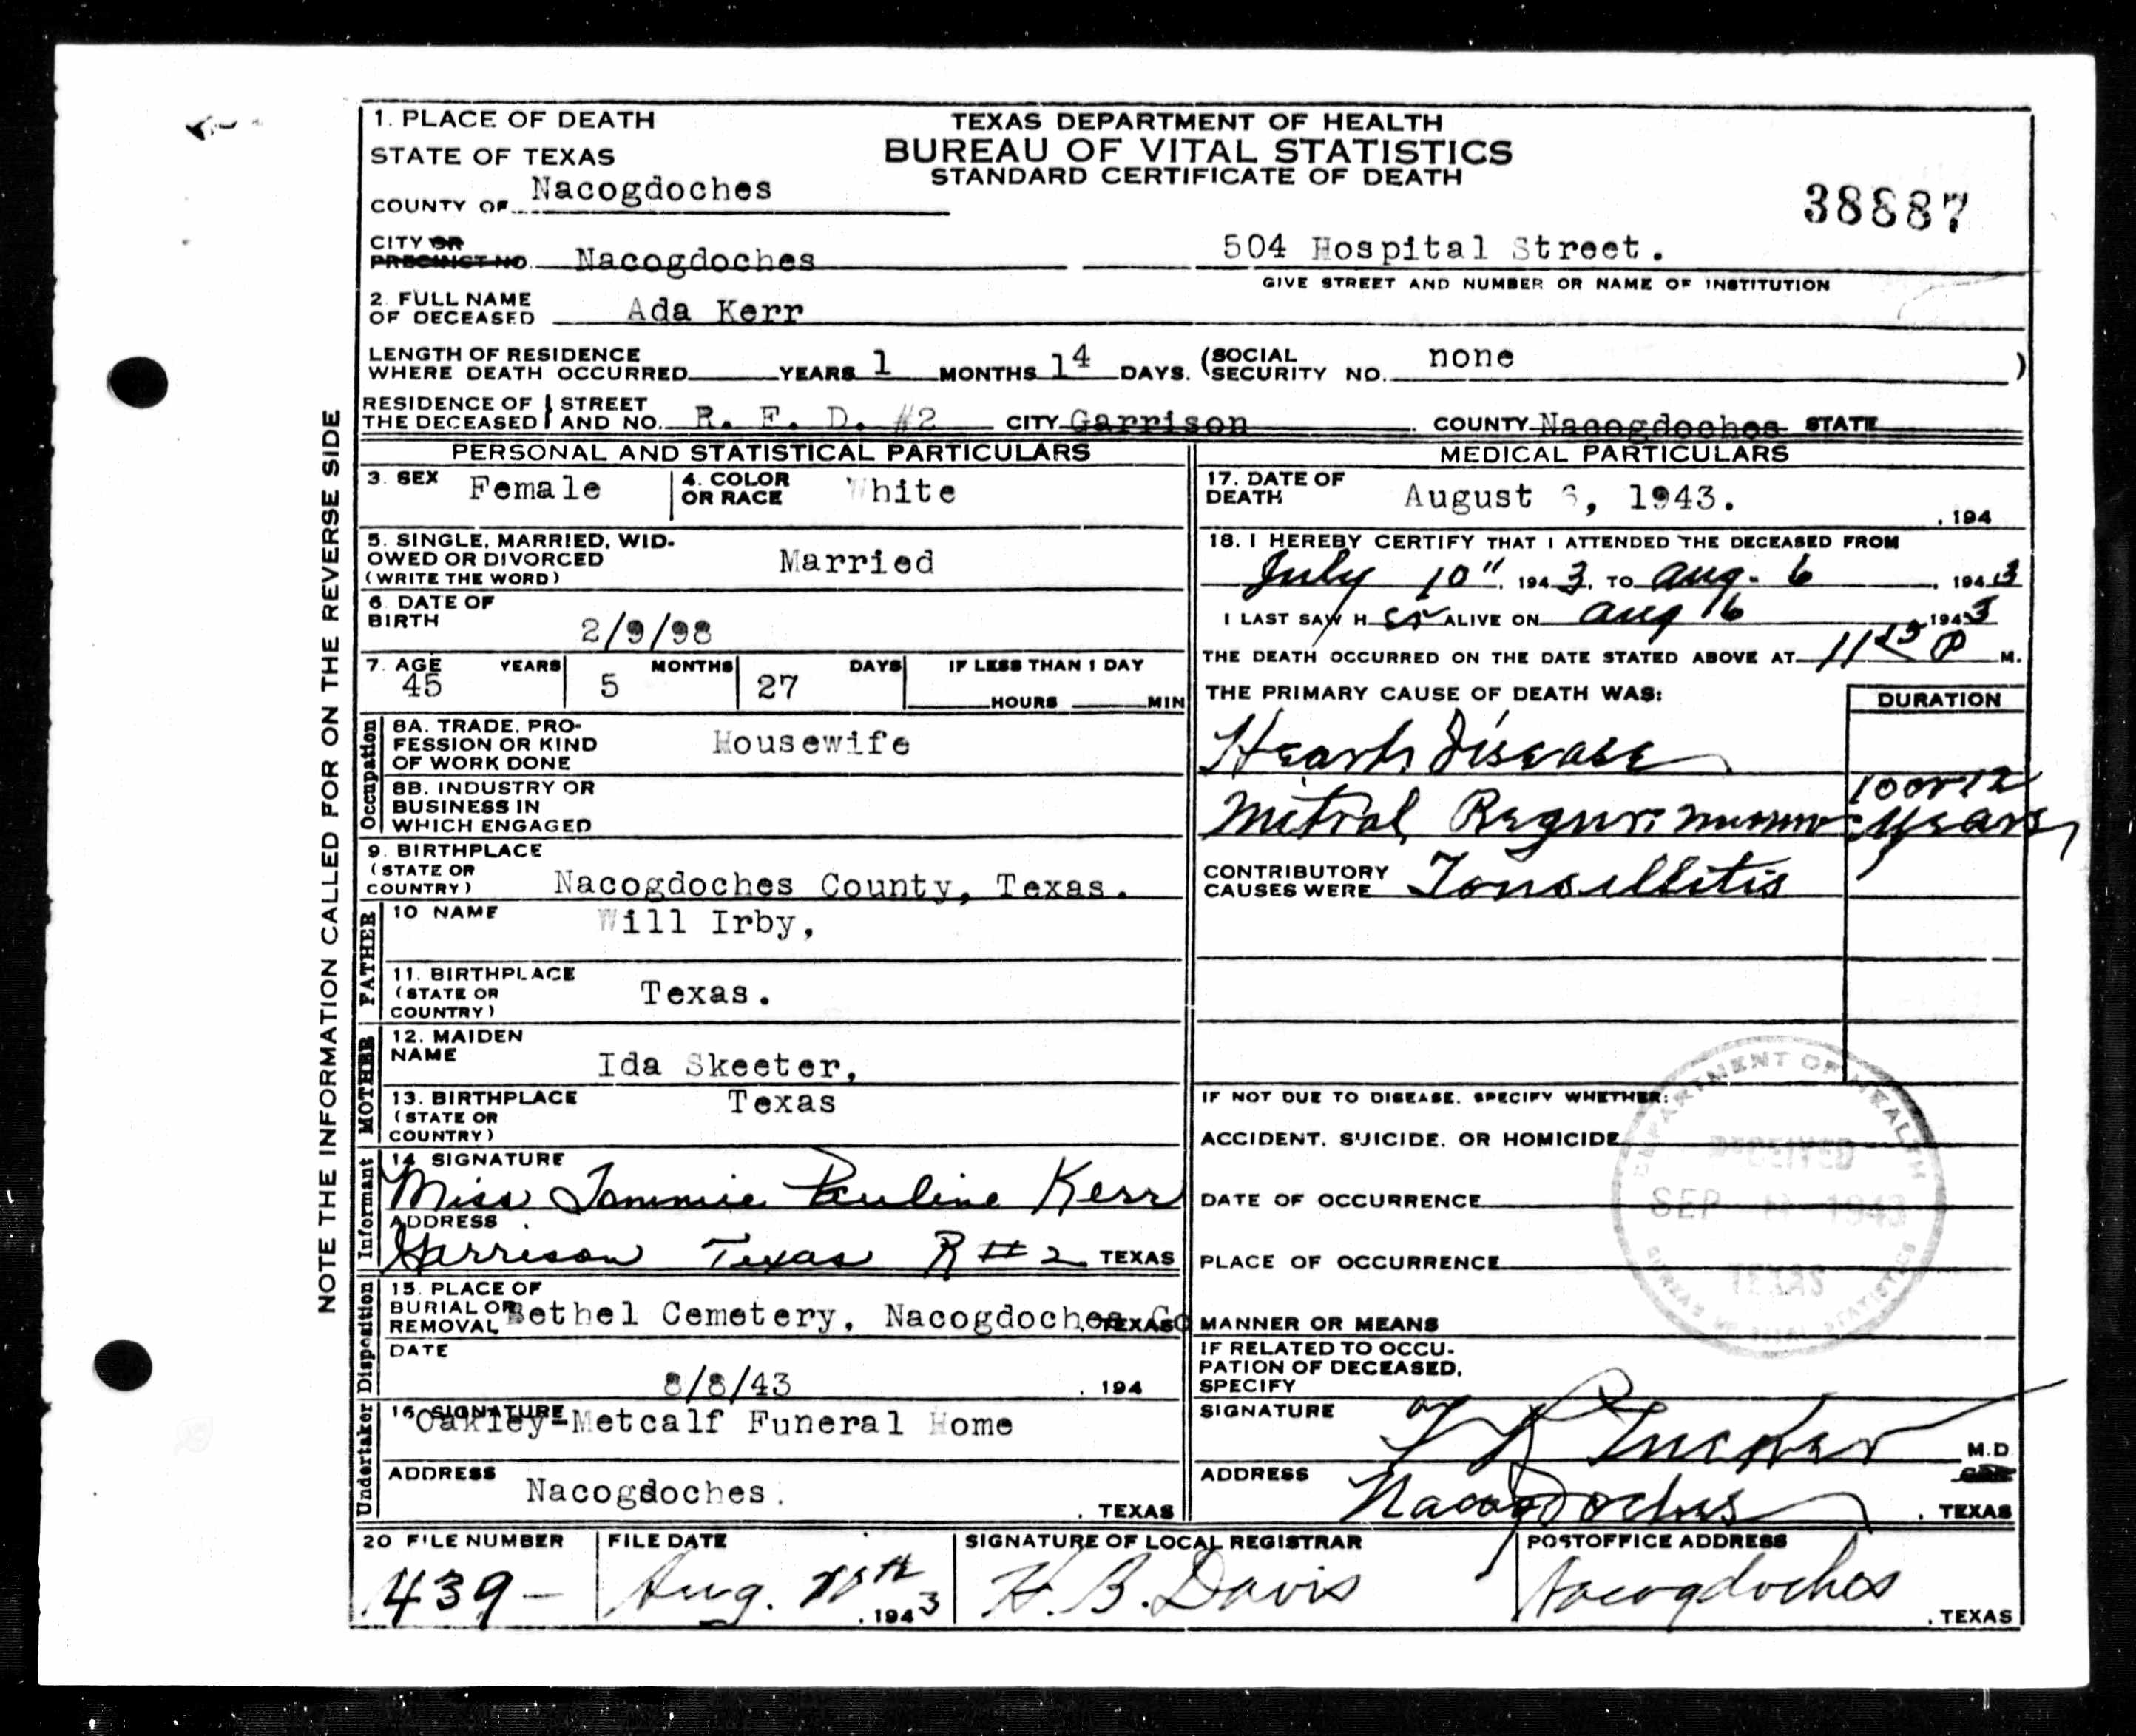 NOTE THE INFORMATION CALLED FOR ON THE REVERSE SIDE
TEXAS DEPARTMENT OF HEALTH
BUREAU OF VITAL STATISTICS
STANDARD CERTIFICATE OF DEATH
38887
1. PLACE OF DEATH
STATE OF TEXAS
COUNTY OF Nacogdoches
CITY OR PRECINCT NO. Nacogdoches 504 Hospital Street.
GIVE STREET AND NUMBER OR NAME OF INSTITUTION
2. FULL NAME OF DECEASED Ada Kerr
LENGTH OF RESIDENCE WHERE DEATH OCCURRED YEARS 1 MONTHS 14 DAYS. (SOCIAL SECURITY NO. none )
RESIDENCE OF THE DECEASED STREET AND NO. R. F. D. #2 CITY Garrison COUNTY Nacogdoches STATE
PERSONAL AND STATISTICAL PARTICULARS
3. SEX Female 4. COLOR OR RACE White
5. SINGLE, MARRIED, WIDOWED OR DIVORCED (WRITE THE WORD) Married
6. DATE OF BIRTH 2/9/98
7. AGE YEARS MONTHS DAYS IF LESS THAN 1 DAY
45 5 27 HOURS MIN
Occupation
8A. TRADE, PROFESSION OR KIND OF WORK DONE Housewife
8B. INDUSTRY OR BUSINESS IN WHICH ENGAGED
9. BIRTHPLACE (STATE OR COUNTRY) Nacogdoches County, Texas.
FATHER
10 NAME Will Irby,
11. BIRTHPLACE (STATE OR COUNTRY) Texas.
MOTHER
12. MAIDEN NAME Ida Skeeter,
13. BIRTHPLACE (STATE OR COUNTRY) Texas
Informant
14 SIGNATURE
Miss Tommie Pauline Kerr
ADDRESS
Garrison Texas R #2 TEXAS
Disposition
15. PLACE OF BURIAL OR REMOVAL Bethel Cemetery, Nacogdoches Co TEXAS
DATE 8/8/43 , 194
Undertaker
16 SIGNATURE
Oakley-Metcalf Funeral Home
ADDRESS Nacogdoches. , TEXAS
MEDICAL PARTICULARS
17. DATE OF DEATH August 6, 1943. , 194
18. I HEREBY CERTIFY THAT I ATTENDED THE DECEASED FROM
July 10", 1943, TO Aug. 6, 1943
I LAST SAW H er ALIVE ON Aug 6 1943
THE DEATH OCCURRED ON THE DATE STATED ABOVE AT 11 P M.
THE PRIMARY CAUSE OF DEATH WAS: DURATION
Heart Disease
Mitral 10 or 12 years
CONTRIBUTORY CAUSES WERE Tonsillitis
IF NOT DUE TO DISEASE, SPECIFY WHETHER:
ACCIDENT, SUICIDE, OR HOMICIDE
DATE OF OCCURRENCE
PLACE OF OCCURRENCE
MANNER OR MEANS
IF RELATED TO OCCUPATION OF DECEASED, SPECIFY
DEPARTMENT OF HEALTH
RECEIVED
SEP 1943
TEXAS
BUREAU OF VITAL STATISTICS
SIGNATURE Tucker M.D.
ADDRESS Nacogdoches , TEXAS
20 FILE NUMBER FILE DATE SIGNATURE OF LOCAL REGISTRAR POSTOFFICE ADDRESS
439- Aug. , 1943 H. B. Davis Nacogdoches , TEXAS